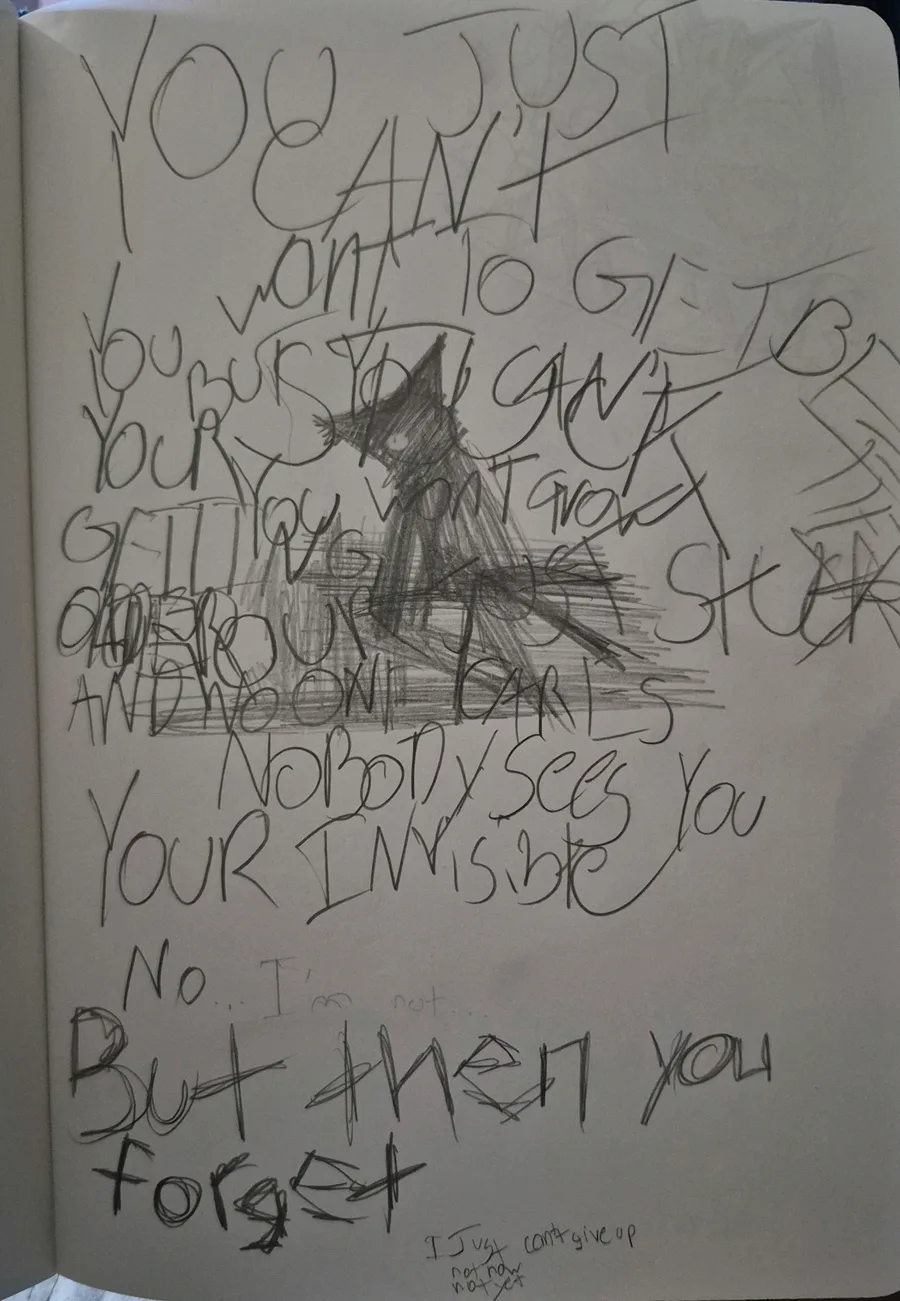 YOU JUST
CAN'T
want TO GET BETTER
You BUT JUST YOU CAN'T
YOUR
You WONT GROW
GETTING
OLDER YOUR JUST STUCK
AND NO ONE CARES
NOBODY sees You
YOUR INVisible
No... I'm not...
But then you
forget
I Just can't give up
not now
not yet